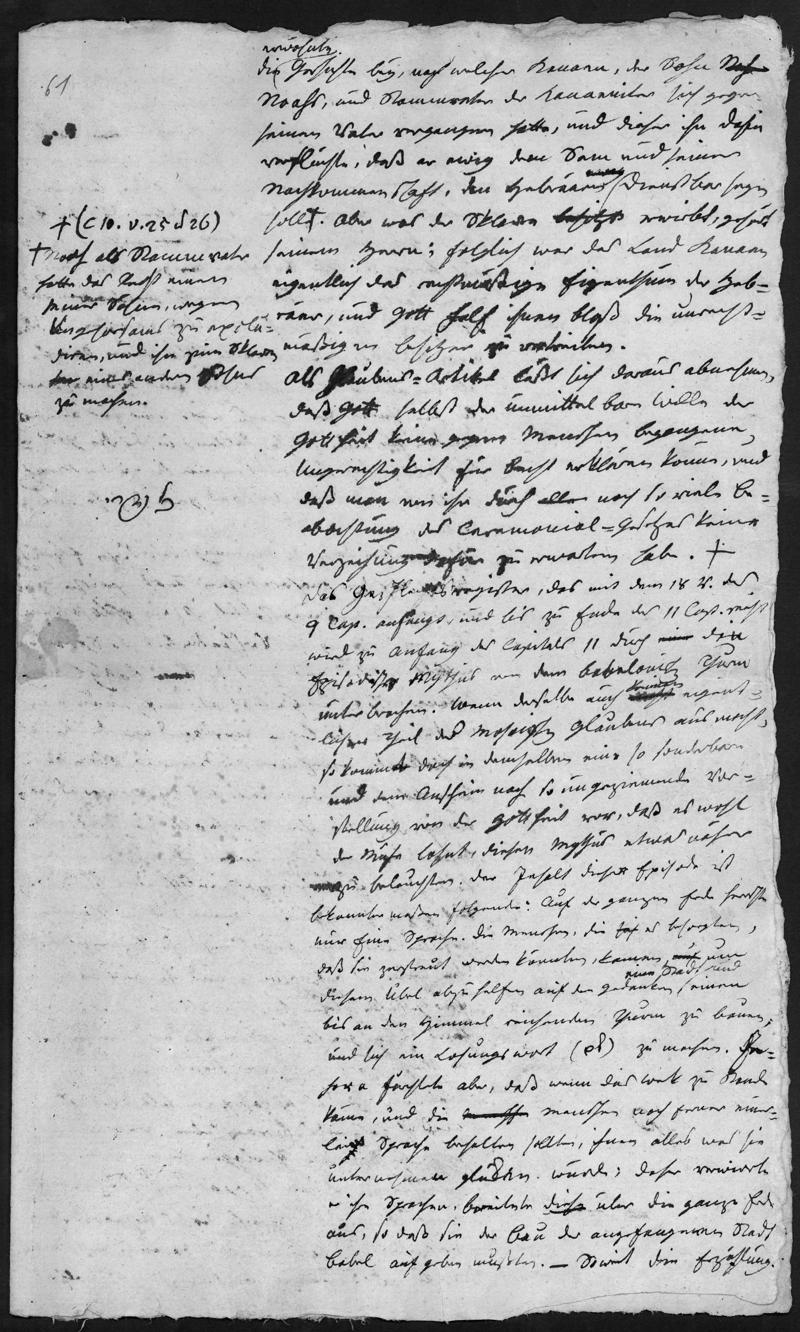 61
erwähnte
die Geschichte bey, nach welcher Kanaan, der Sohn
Noahs, und Stammvater der Kananniter sich gegen
seinen Vater vergangen hatte, und dieser ihn dafür
verfluchte; daß er ewig dem Sem und seiner
Nachkommenschaft, den Hebräern dienstbar seyn
sollte. Aber was der Sklave besitzt erwirbt, gehört
seinem Herrn; folglich war das Land Kanaan
eigentlich das rechtmäßige Eigenthum der Heb-
räer, und Gott half ihnen bloß die unrecht-
mäßigen besitzer zu vertreiben.
Als Glaubens-Artikel läßt sich daraus abnehmen,
daß Gott selbst der unmittelbare Wille der
Gottheit keine gegen Menschen begangene
Ungerechtigkeit für Recht erklären könne, und
daß man von ihr durch alle noch so viele be-
obachtung des Ceremonial-Gesetzes keine
Verzeihung dafür zu erwarten habe. +
Das Geschlechtsregister, das mit dem 18 V. des
9 Cap. anfängt, und bis zu Ende des 11 Cap. reicht
wird zu Anfang des Capitels 11 durch den
Episodischen Mythus von dem babelonisch Thurm
unterbrochen. Wenn derselbe auch keinen eigent-
lichen Theil des Mosaischen Glaubens ausmacht,
so kommt doch in demselben eine so sonderbare
und dem Anschein nach so ungeziemende Vor-
stellung von der Gottheit vor, daß es wohl
der Mühe lohnt, diesen Mythus etwas näher
zu beleuchten. Der Inhalt dieser Episode ist
bekannter maßen folgender: Auf der ganzen Erde herrschte
nur Eine Sprache. Die Menschen, die es besorgten,
daß sie zerstreut werden könnten, kamen, um
eine Stadt und
diesem Übel abzuhelfen auf den gedanken, einen
bis an den Himmel reichenden Thurm zu bauen,
und sich ein Losungswort (שם) zu machen. Je-
hova fürchtete aber, daß wenn das werk zu Stande
käme, und die Menschen noch ferner einer-
lei Sprache behalten sollten, ihnen alles was sie
unternehmen glücken würde; daher verwirrte
er ihre Sprachen, breitete diese über die ganze Erde
aus, so daß sie den bau der angefangenen Stadt
babel aufgeben mußten. — Soweit die Erzählung.
+ (C 10. v. 25 d 26)
+ Noah als Stammvater
hatte das Recht einen
seiner Söhne, wegen
Ungehorsams zu exclu-
diren, und ihn zum Sklaven
eines andern Sohns
zu machen.